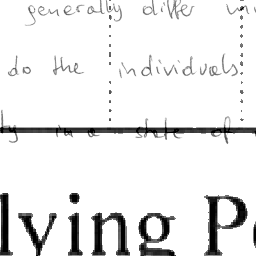 generally differ
do the individuals
ty in a state of
lying P